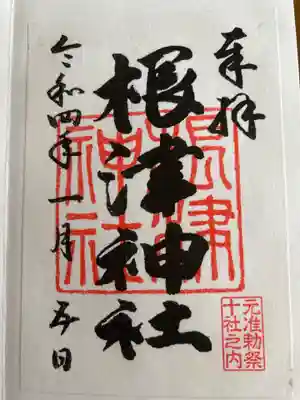 奉拝
根津神社
令和四年一月五日
根津神社
元准勅祭
十社之内